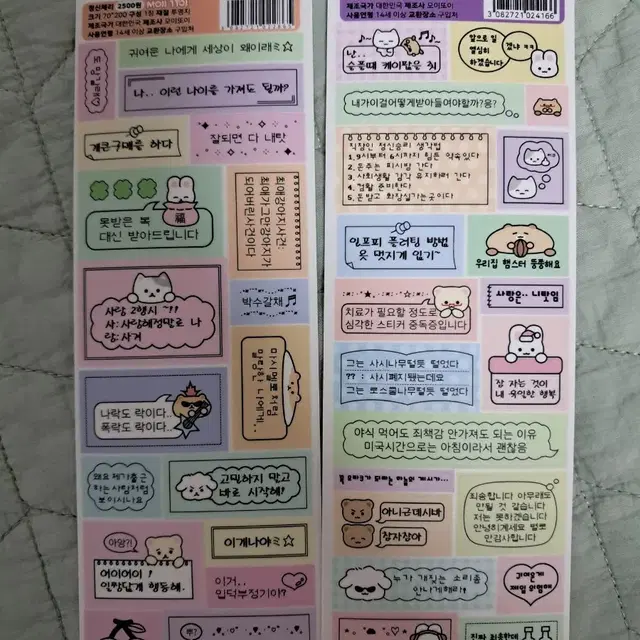 정신체리 2500원
크기 70*200 구성 1장 재질 투명지
제조국가 대한민국 제조사 모이또이
사용연령 14세 이상 교환장소 구입처
귀여운 나에게 세상이 왜이래ミ☆
나.. 이런 나이를 가져도 될까?
계큰구매를 하다
잘되면 다 내탓
못받은 복
대신 받아드립니다
최애강아지사건:
최애가그만강아지가
되어버린사건이다
사담 2행시 ~!!
사: 사담해정말로 나
담: 사거
박수갈채♬
미시멜롱처럼
말랑한 나에게..
나락도 락이다..
폭락도 락이다..
왜요 제가출근
하는사람처럼
보이시나요
고민하지 말고
바로 시작해!
아앙?!
어이어이!
인짱답게 행동해.
이게나야ミ☆
이거..
입덕부정기야?
뿌?
제조국가 대한민국 제조사 모이또이
사용연령 14세 이상 교환장소 구입처
3 082721 024166
난..
슬플때 케이팝을 춰
앞으로 일
열심히
하겠습니다
겠냐 ㅋㅋ
내가이걸어떻게받아들여야할까?응?
직장인 정신승리 생각법
1. 9시부터 6시까지 힘든 약속있다
2. 돈주는 피시방 간다
3. 사회생활 감각 유지하러 간다
4. 겸활 준비한다
5. 돈받고 화장실가는곳이다
인프피 플러팅 방법
옷 멋지게 입기~
우리집 햄스터 뚱뚱해요
치료가 필요할 정도로
심각한 스티커 중독증입니다
사랑은.. 니탓임
그는 사시나무떨듯 떨었다
?? : 사시폐지됐는데요
그는 로스쿨나무떨듯 떨었다
잠 자는 것이
내 유일한 행복
야식 먹어도 죄책감 안가져도 되는 이유
미국시간으로는 아침이라서 괜찮음
아니구데시바
잠자장아
죄송합니다 아무래도
안될 것 같습니다
저는 못하겠습니다
안녕히계세요 별로
안감사합니다
누가 개짖는 소리좀
안나게해라!
귀여운게
제일 위험해